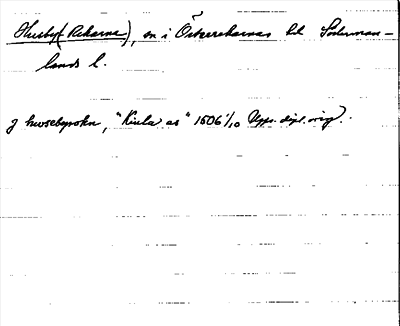 Husby (Rekarne), sn i Österrekarnas hd Söderman-
lands l.
J husebysokn, "Kiula as" 1506 1/10 Upps. dipl. orig.